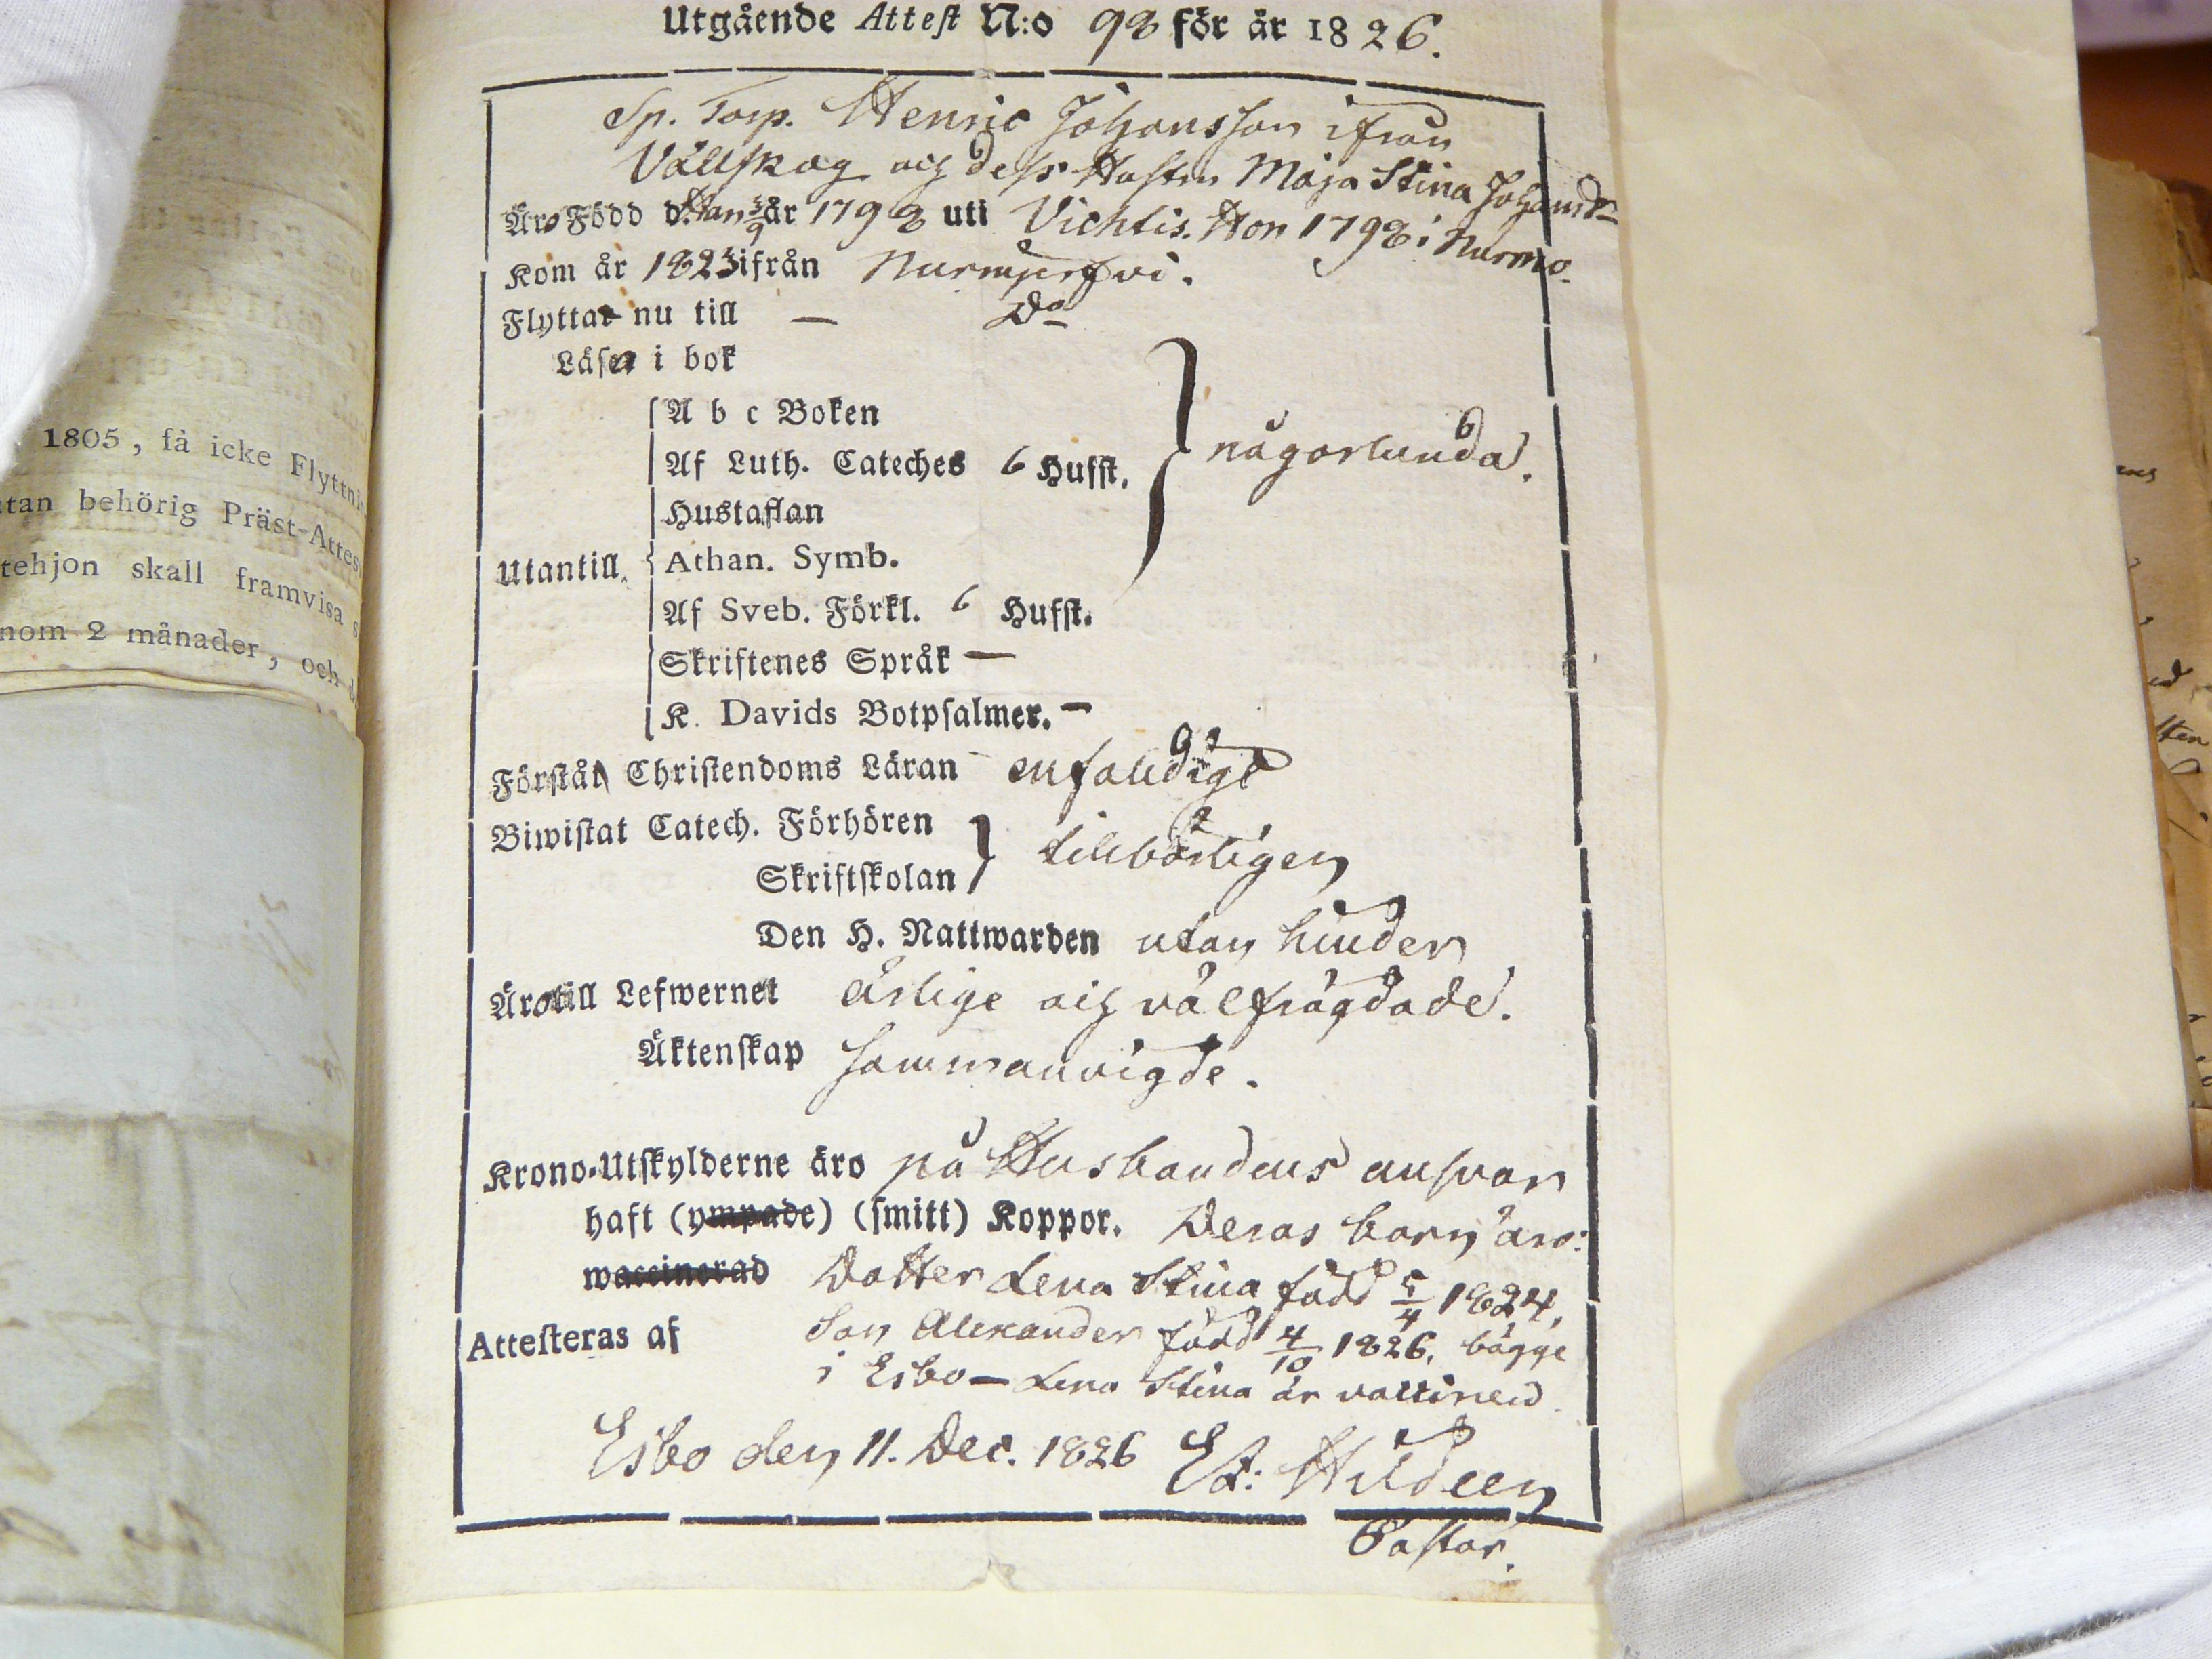 1805, få icke Flyttni
tan behörig Präst-Attes
tehjon skall framvisa s
nom 2 månader, och d
Utgående Attest N:o 98 för år 1826.
Sp. Torp. Henric Johansson ifrån
Vällskog och dess Hustru Maja Stina Johansdr
Äro Född d. Han 3/9 år 1798 uti Vichtis. Hon 1798 i Nurmo.
Kom år 1823 ifrån Nurmijerfvi.
Flyttar nu till — Do
Läsa i bok
A b c Boken
Af Luth. Cateches 6 Hufst. någorlunda.
Hustaflan
Utantill. Athan. Symb.
Af Sveb. Förkl. 6 Hufst.
Skriftenes Språk —
K. Davids Botpsalmer. —
Förstå Christendoms Läran enfaldigt
Biwistat Catech. Förhören
Skriftskolan tillbörligen
Den H. Nattwarden utan hinder
Äro till Lefwernet ärlige och välfrägdade.
Äktenskap sammanvigde.
Krono-Utskylderne äro på Husbondens ansvar
haft (ympade) (smitt) Koppor. Deras barn äro:
waccinerad Dotter Lena Stina född 5/4 1824,
Attesteras af Son Alexander född 4/10 1826. bägge
i Esbo — Lena Stina är vaccinerd.
Esbo den 11. Dec. 1826 Hildeen
Pastor.